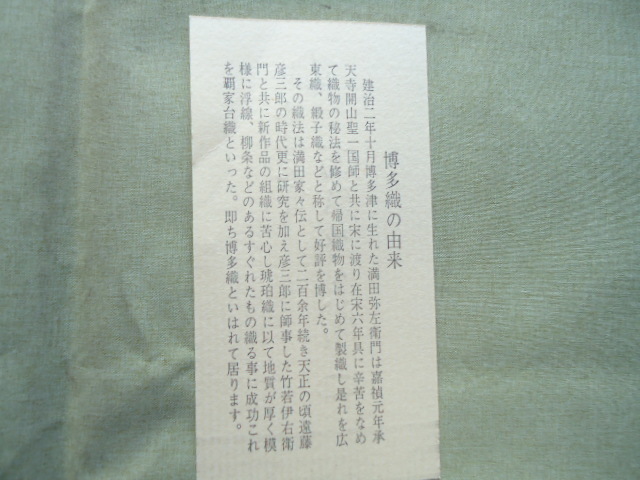 博多織の由来
建治二年十月博多津に生れた満田弥左衛門は嘉禎元年承
天寺開山聖一国師と共に宋に渡り在宋六年具に辛苦をなめ
て織物の秘法を修めて帰国織物をはじめて製織し是れを広
東織、緞子織などと称して好評を博した。
その織法は満田家々伝として二百余年続き天正の頃遠藤
彦三郎の時代更に研究を加え彦三郎に師事した竹若伊右衛
門と共に新作品の組織に苦心し琥珀織に以て地質が厚く模
様に浮線、柳条などのあるすぐれたもの織る事に成功これ
を覇家台織といった。即ち博多織といはれて居ります。